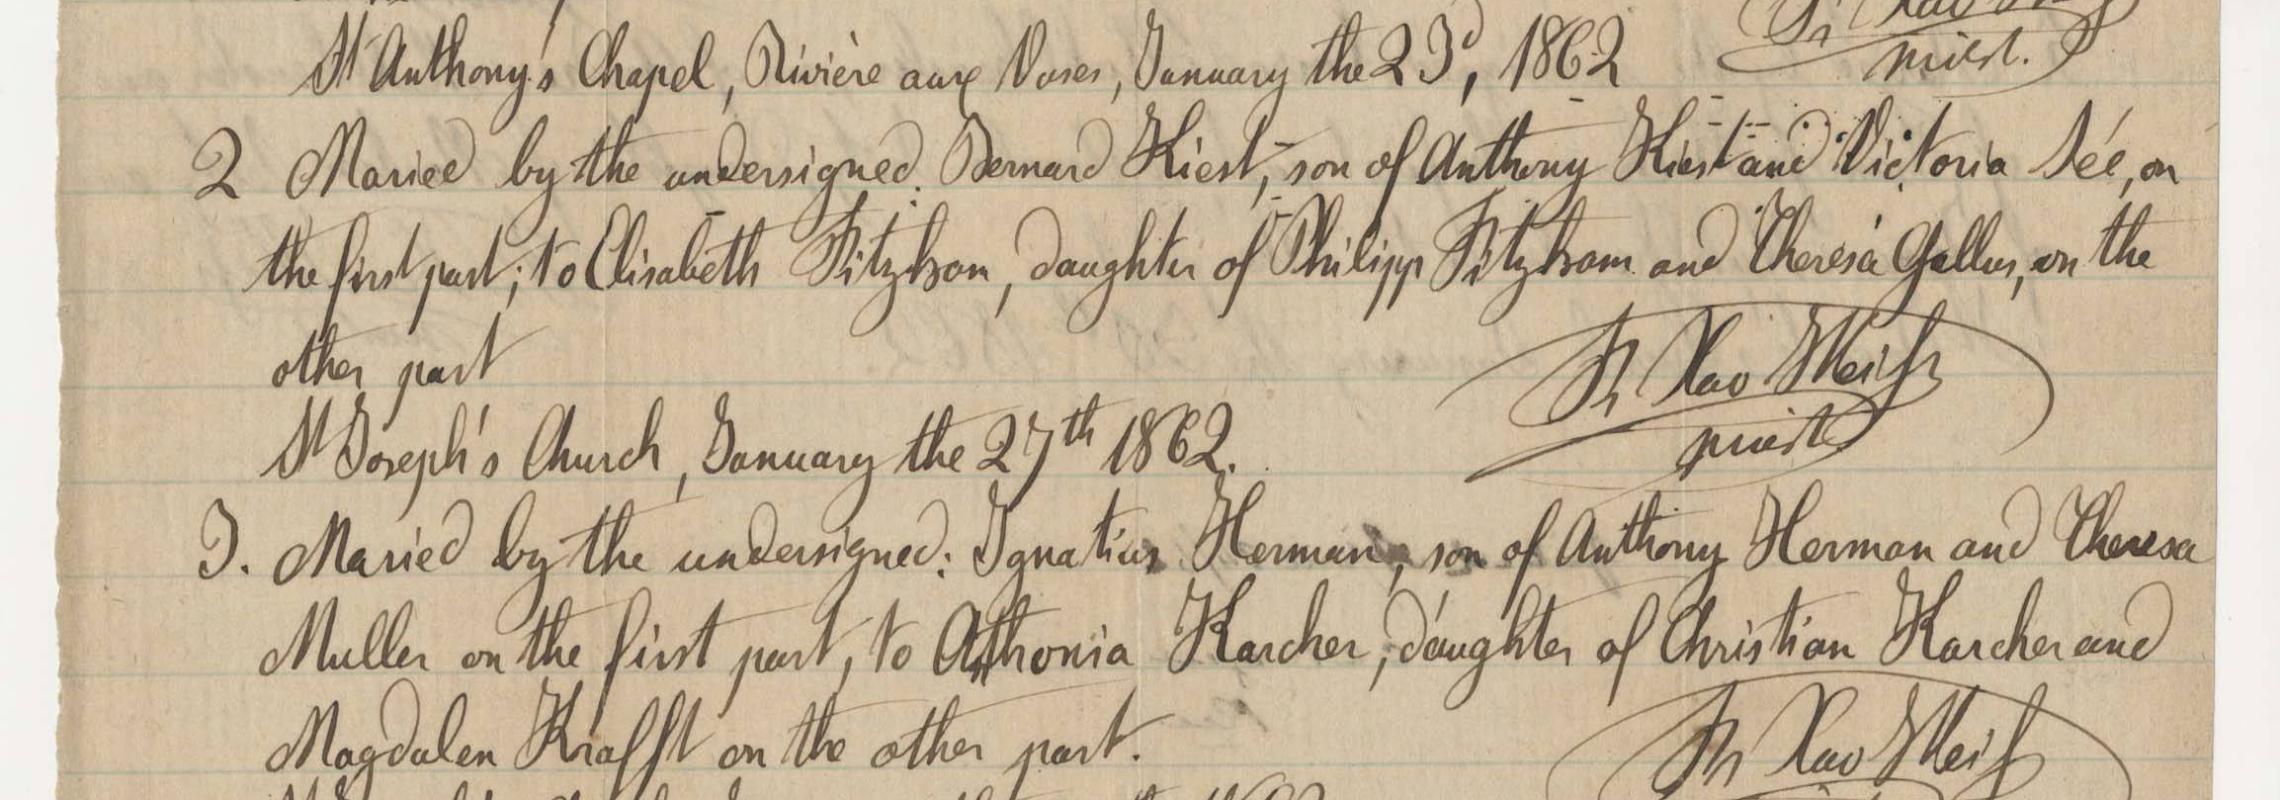 St Anthony's Chapel, Rivière aux Vases, January the 23d, 1862
priest.
2 Maried by the undersigned: Bernard Kiest, son of Anthony Kiest and Victoria Sée, on
the first part; to Elisabeth Fitzkam, daughter of Philipp Fitzkam and Theresa Gallus, on the
other part
Fr Xav Weiss
priest
St Joseph's Church, January the 27th 1862.
3. Maried by the undersigned: Ignatius Herman, son of Anthony Herman and Theresa
Muller on the first part, to Anthonia Karcher, daughter of Christian Karcher and
Magdalen Krafft on the other part.
Fr Xav Weiss